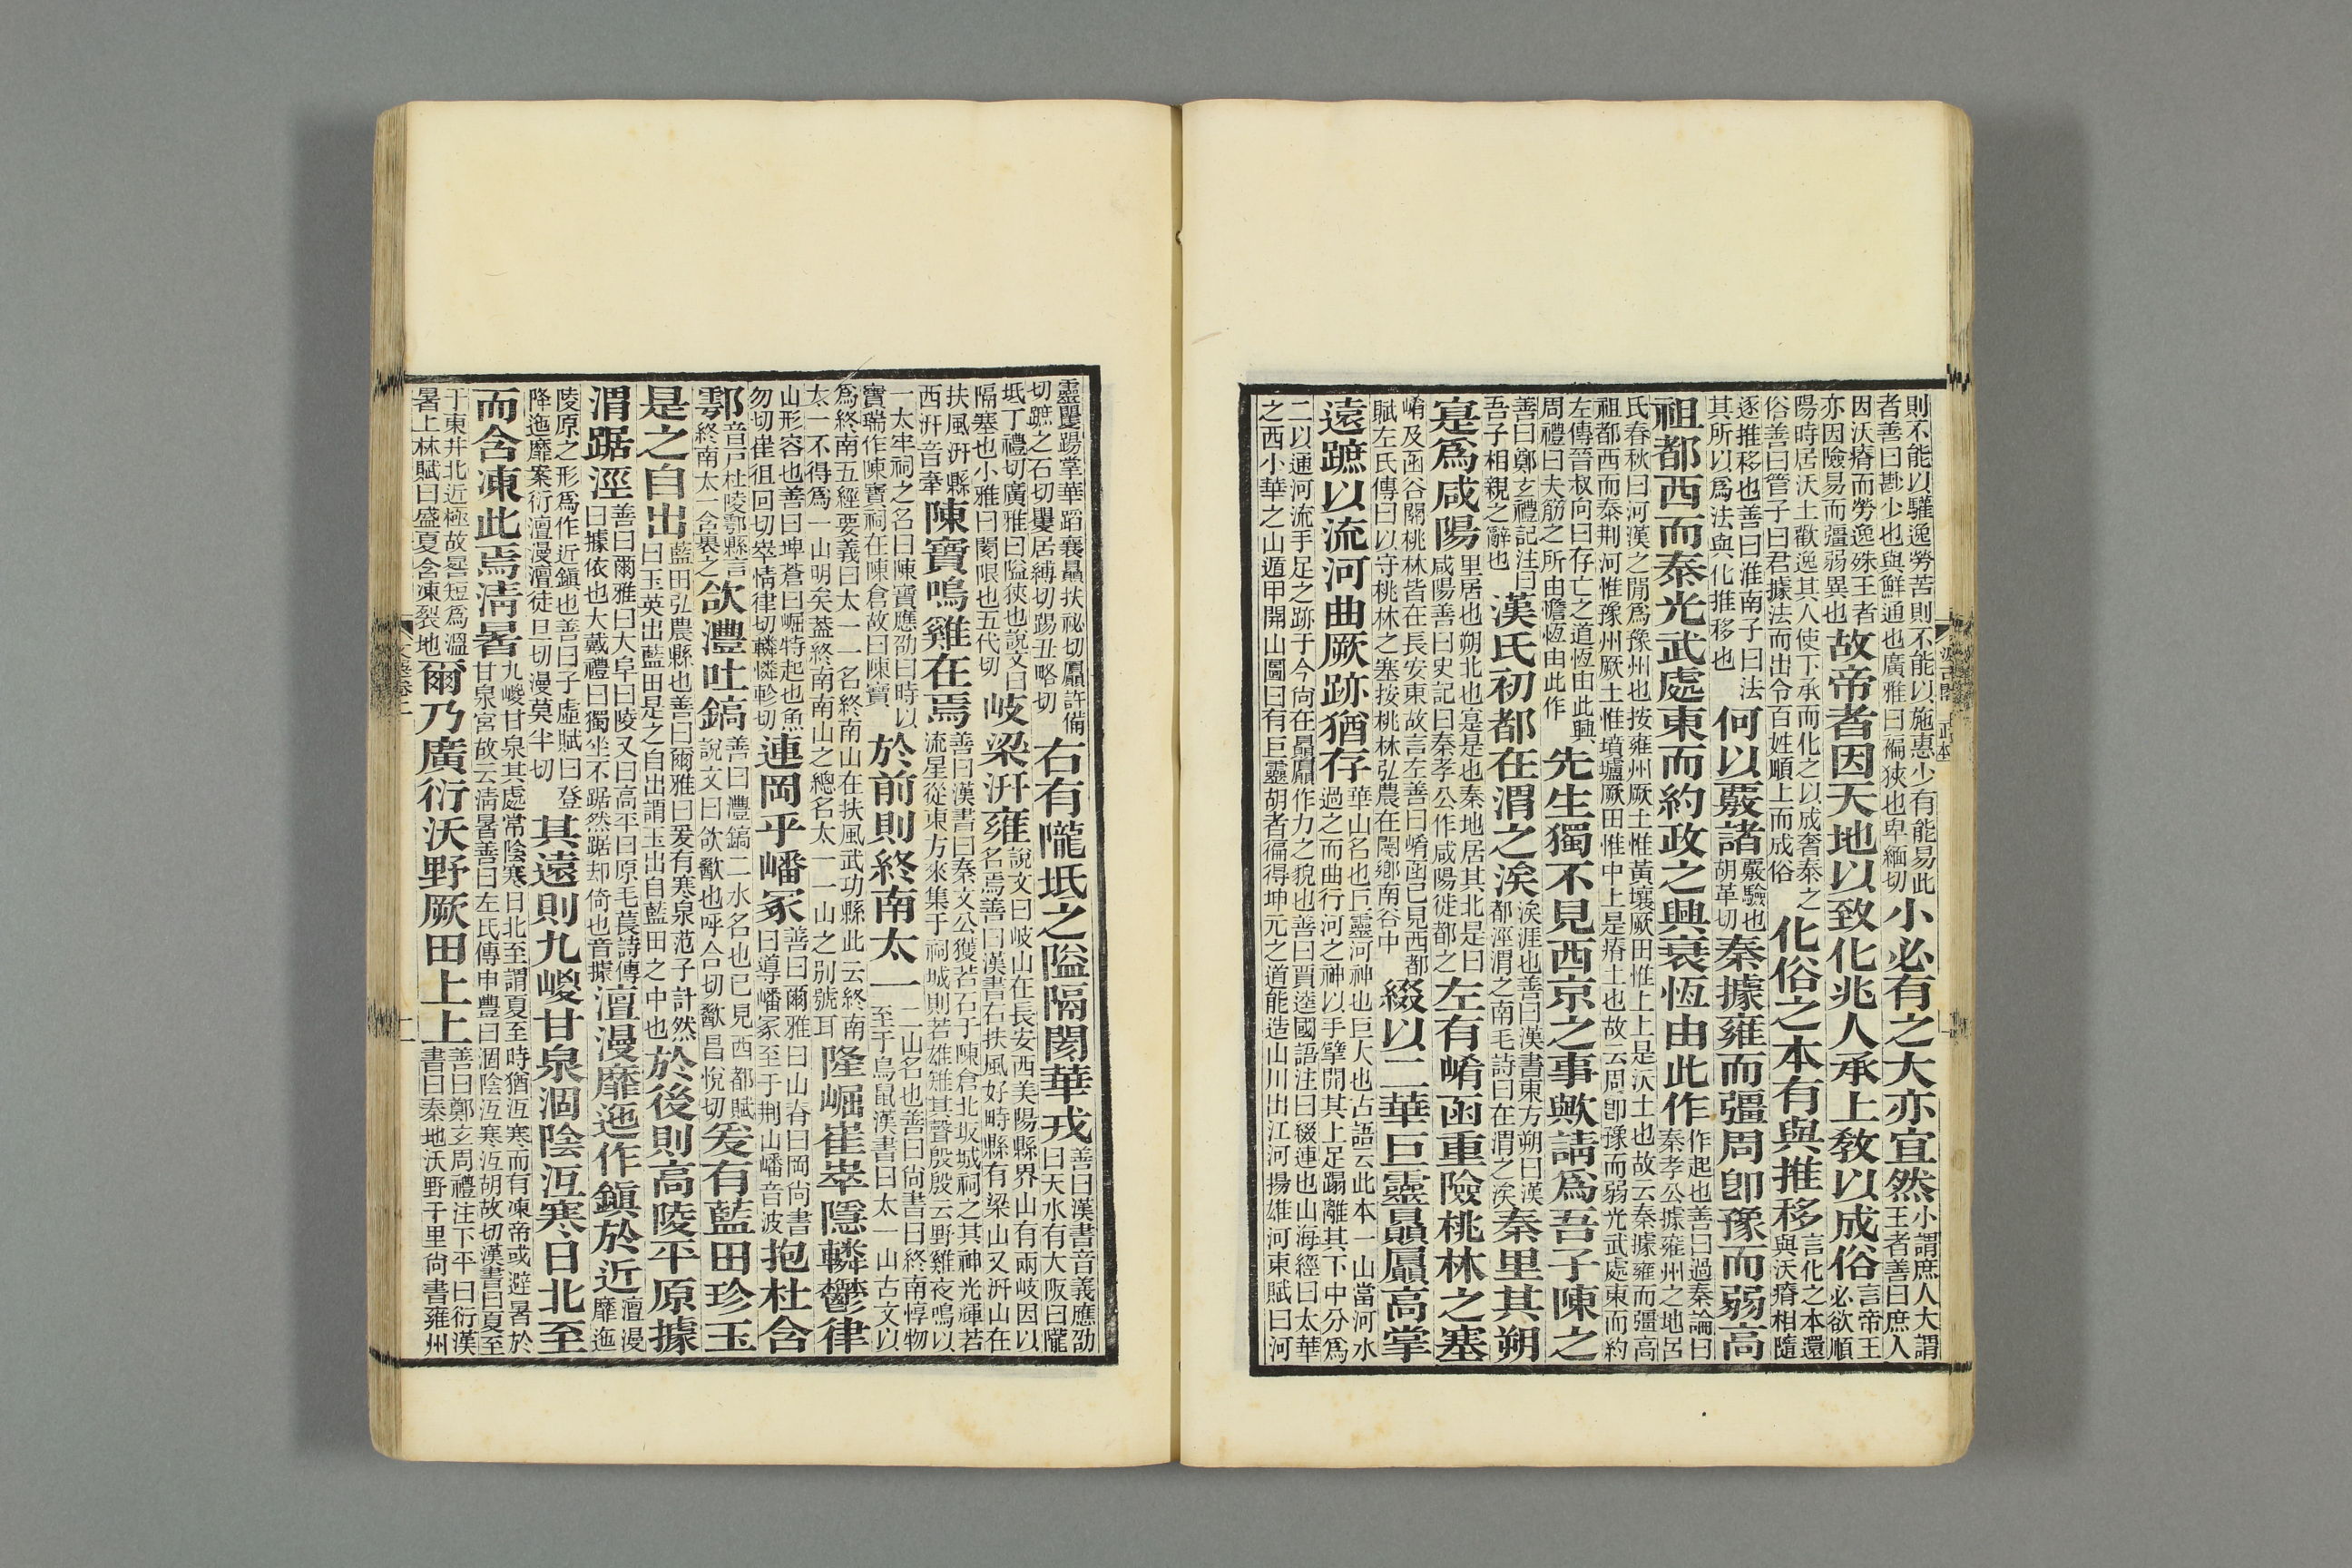 則不能以驩逸勞苦則不能以施惠少有能易此者善曰尠少也與鮮通也廣雅曰褊狹也卑緬切小必有之大亦宜然小謂庶人大謂王者善曰庶人
因沃瘠而勞逸殊王者亦因險易而彊弱異也故帝者因天地以致化兆人承上敎以成俗言帝王必欲順
陽時居沃土歡逸其人使下承而化之以成奢泰之俗善曰管子曰君據法而出令百姓順上而成俗化俗之本有與推移言化之本還與沃瘠相隨
逐推移也善曰淮南子曰法其所以爲法與化推移也何以覈諸覈驗也胡革切秦據雍而彊周卽豫而弱高
祖都西而泰光武處東而約政之興衰恆由此作作起也善曰過秦論曰秦孝公據雍州之地呂
氏春秋曰河漢之閒爲豫州也按雍州厥土惟黃壤厥田惟上上是沃土也故云秦據雍而彊高祖都西而泰荆河惟豫州厥土惟墳壚厥田惟中上是瘠土也故云周卽豫而弱光武處東而約
左傳晉叔向曰存亡之道恆由此興周禮曰夫筋之所由幨恆由此作先生獨不見西京之事歟請爲吾子陳之
善曰鄭玄禮記注曰吾子相親之辭也漢氏初都在渭之涘涘涯也善曰漢書東方朔曰漢都涇渭之南毛詩曰在渭之涘秦里其朔
寔爲咸陽里居也朔北也寔是也秦地居其北是曰咸陽善曰史記曰秦孝公作咸陽徙都之左有崤函重險桃林之塞
崤及函谷關桃林皆在長安東故言左善曰崤函已見西都賦左氏傳曰以守桃林之塞按桃林弘農在閿鄉南谷中綴以二華巨靈贔屭高掌
遠蹠以流河曲厥跡猶存華山名也巨靈河神也巨大也古語云此本一山當河水過之而曲行河之神以手擘開其上足蹋離其下中分爲
二以通河流手足之跡于今尙在贔屭作力之貌也善曰賈逵國語注曰綴連也山海經曰太華之西小華之山遁甲開山圖曰有巨靈胡者徧得坤元之道能造山川出江河揚雄河東賦曰河
靈矍踢掌華蹈襄贔扶祕切屭許備切蹠之石切矍居縛切踢丑略切右有隴坻之隘隔閡華戎善曰漢書音義應劭曰天水有大阪曰隴
坻丁禮切廣雅曰隘狹也說文曰隔塞也小雅曰閡限也五代切岐梁汧雍說文曰岐山在長安西美陽縣界山有兩岐因以名焉善曰漢書右扶風好畤縣有梁山又汧山在
扶風汧縣西汧音牽陳寶鳴雞在焉善曰漢書曰秦文公獲若石于陳倉北坂城祠之其神光輝若流星從東方來集于祠城則若雄雉其聲殷殷云野雞夜鳴以
一太牢祠之名曰陳寶應劭曰時以寶瑞作陳寶祠在陳倉故曰陳寶於前則終南太一二山名也善曰尙書曰終南惇物至于鳥鼠漢書曰太一山古文以
爲終南五經要義曰太一一名終南山在扶風武功縣此云終南太一不得爲一山明矣蓋終南南山之總名太一一山之別號耳隆崛崔崒隱轔鬱律
山形容也善曰埤蒼曰崛特起也魚勿切崔徂回切崒情律切轔憐軫切連岡乎嶓冢善曰爾雅曰山脊曰岡尙書曰導嶓冢至于荆山嶓音波抱杜含
鄠音戶杜陵鄠縣言終南太一含裹之欱灃吐鎬善曰灃鎬二水名也已見西都賦說文曰欱歠也呼合切歠昌悅切爰有藍田珍玉
是之自出藍田弘農縣也善曰爾雅曰爰有寒泉范子計然曰玉英出藍田是之自出謂玉出自藍田之中也於後則高陵平原據
渭踞涇善曰爾雅曰大阜曰陵又曰高平曰原毛萇詩傳曰據依也大戴禮曰獨坐不踞然踞却倚也音據澶漫靡迤作鎭於近澶漫靡迤
陵原之形爲作近鎭也善曰子虛賦曰登降迤靡案衍澶漫澶徒旦切漫莫半切其遠則九嵕甘泉涸陰沍寒日北至
而含凍此焉淸暑九嵕甘泉其處常陰寒日北至謂夏至時猶沍寒而有凍帝或避暑於甘泉宮故云淸暑善曰左氏傳申豐曰涸陰沍寒沍胡故切漢書曰夏至
于東井北近極故晷短爲溫暑上林賦曰盛夏含凍裂地爾乃廣衍沃野厥田上上善曰鄭玄周禮注下平曰衍漢書曰秦地沃野千里尙書雍州